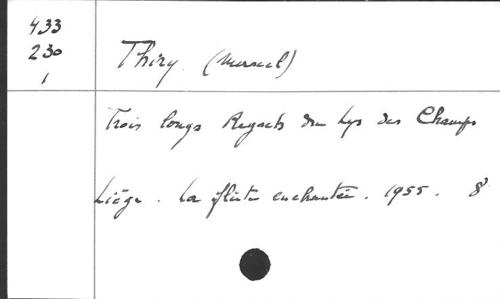 433
230
1
Thiry (Marcel)
Trois longs Regards du Lys des Champs
Liège. La flûte enchantée. 1955. 8°